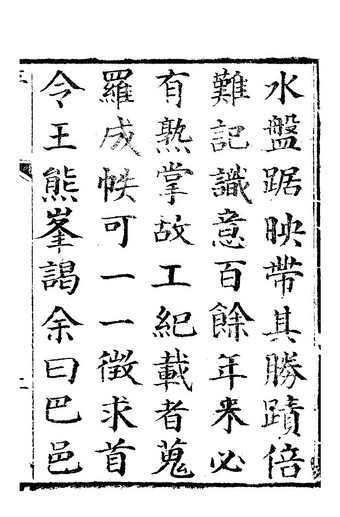 水盤踞映帶其勝蹟倍
難記識意百餘年来必
有熟掌故工紀載者蒐
羅成帙可一一徵求首
令王熊峯謁余曰巴邑